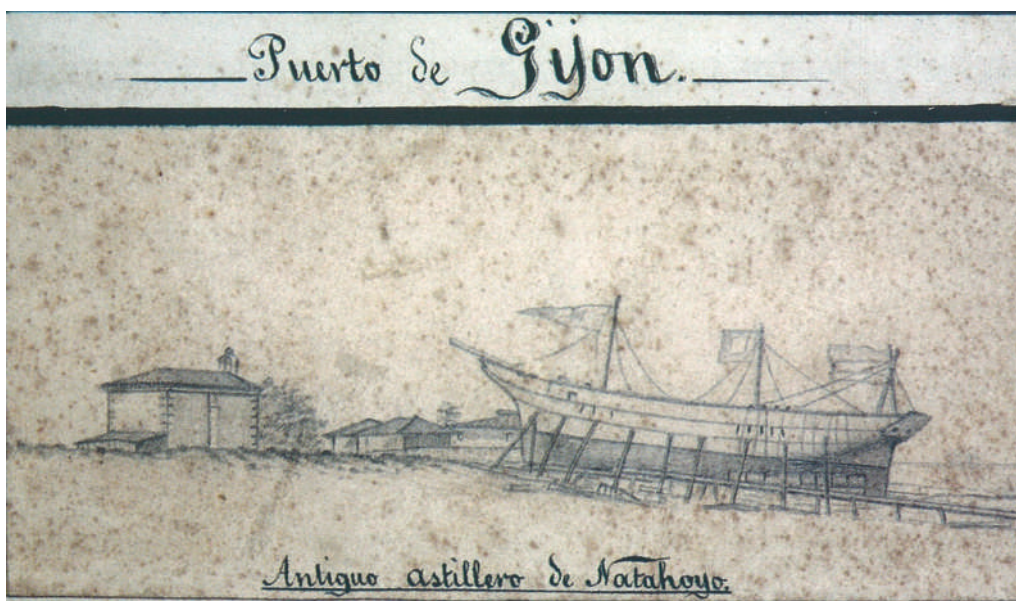 Puerto de Gijon.
Antiguo astillero de Natahoyo.